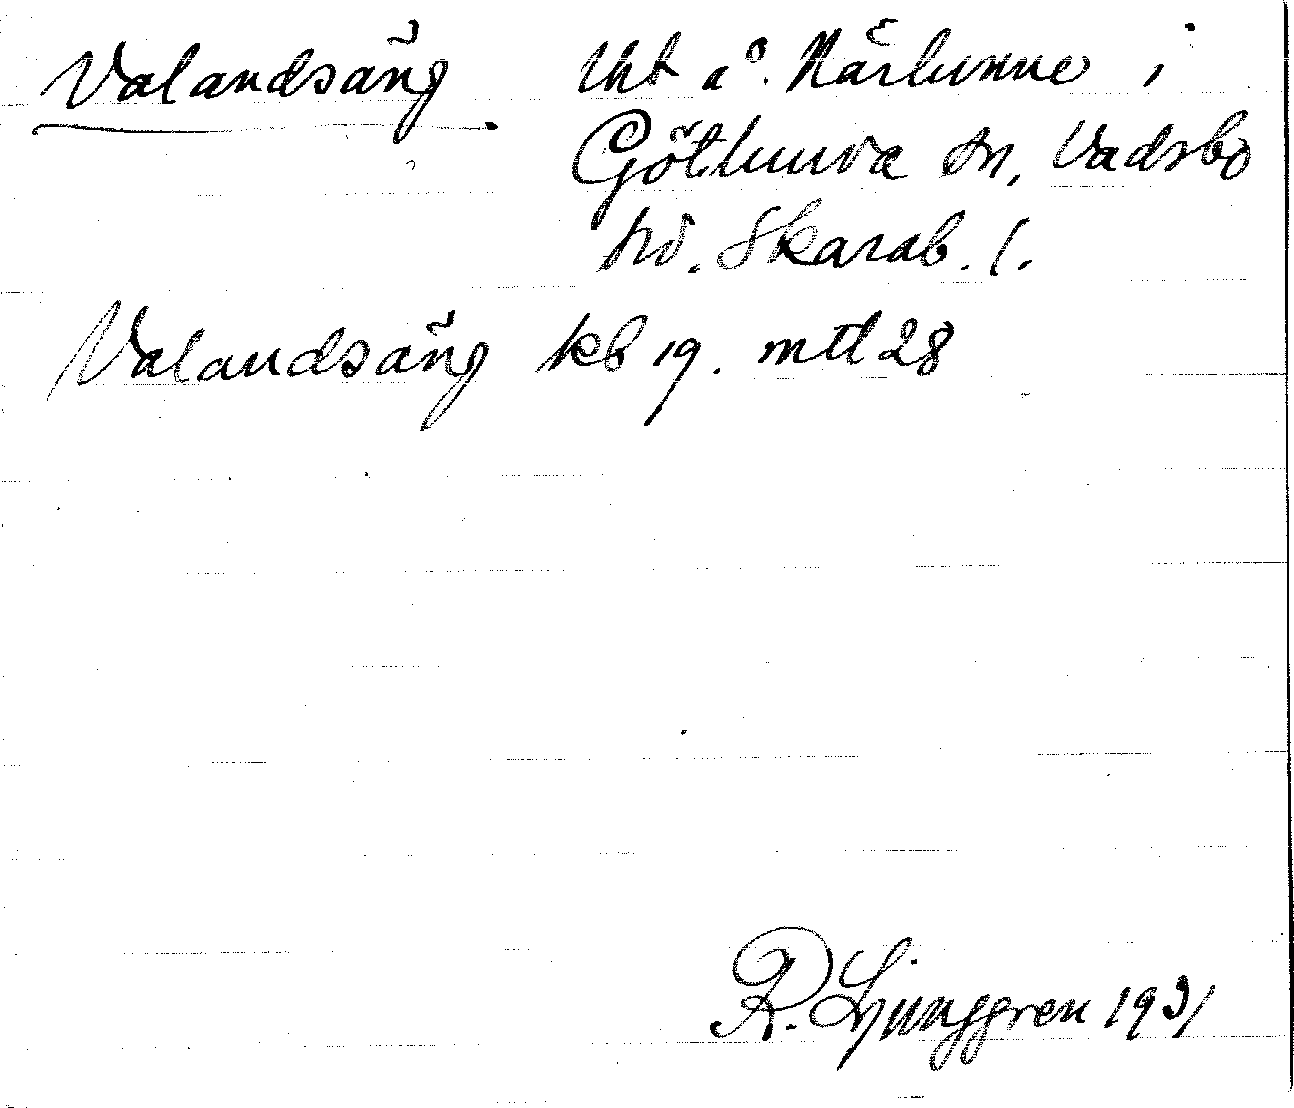 Valandsäng tht å. Närlunne i
Götlunda sn, Vadsbo
hd. Skarab. l.
Valandsäng kb 19. mtl 28
R. Ljunggren 1931